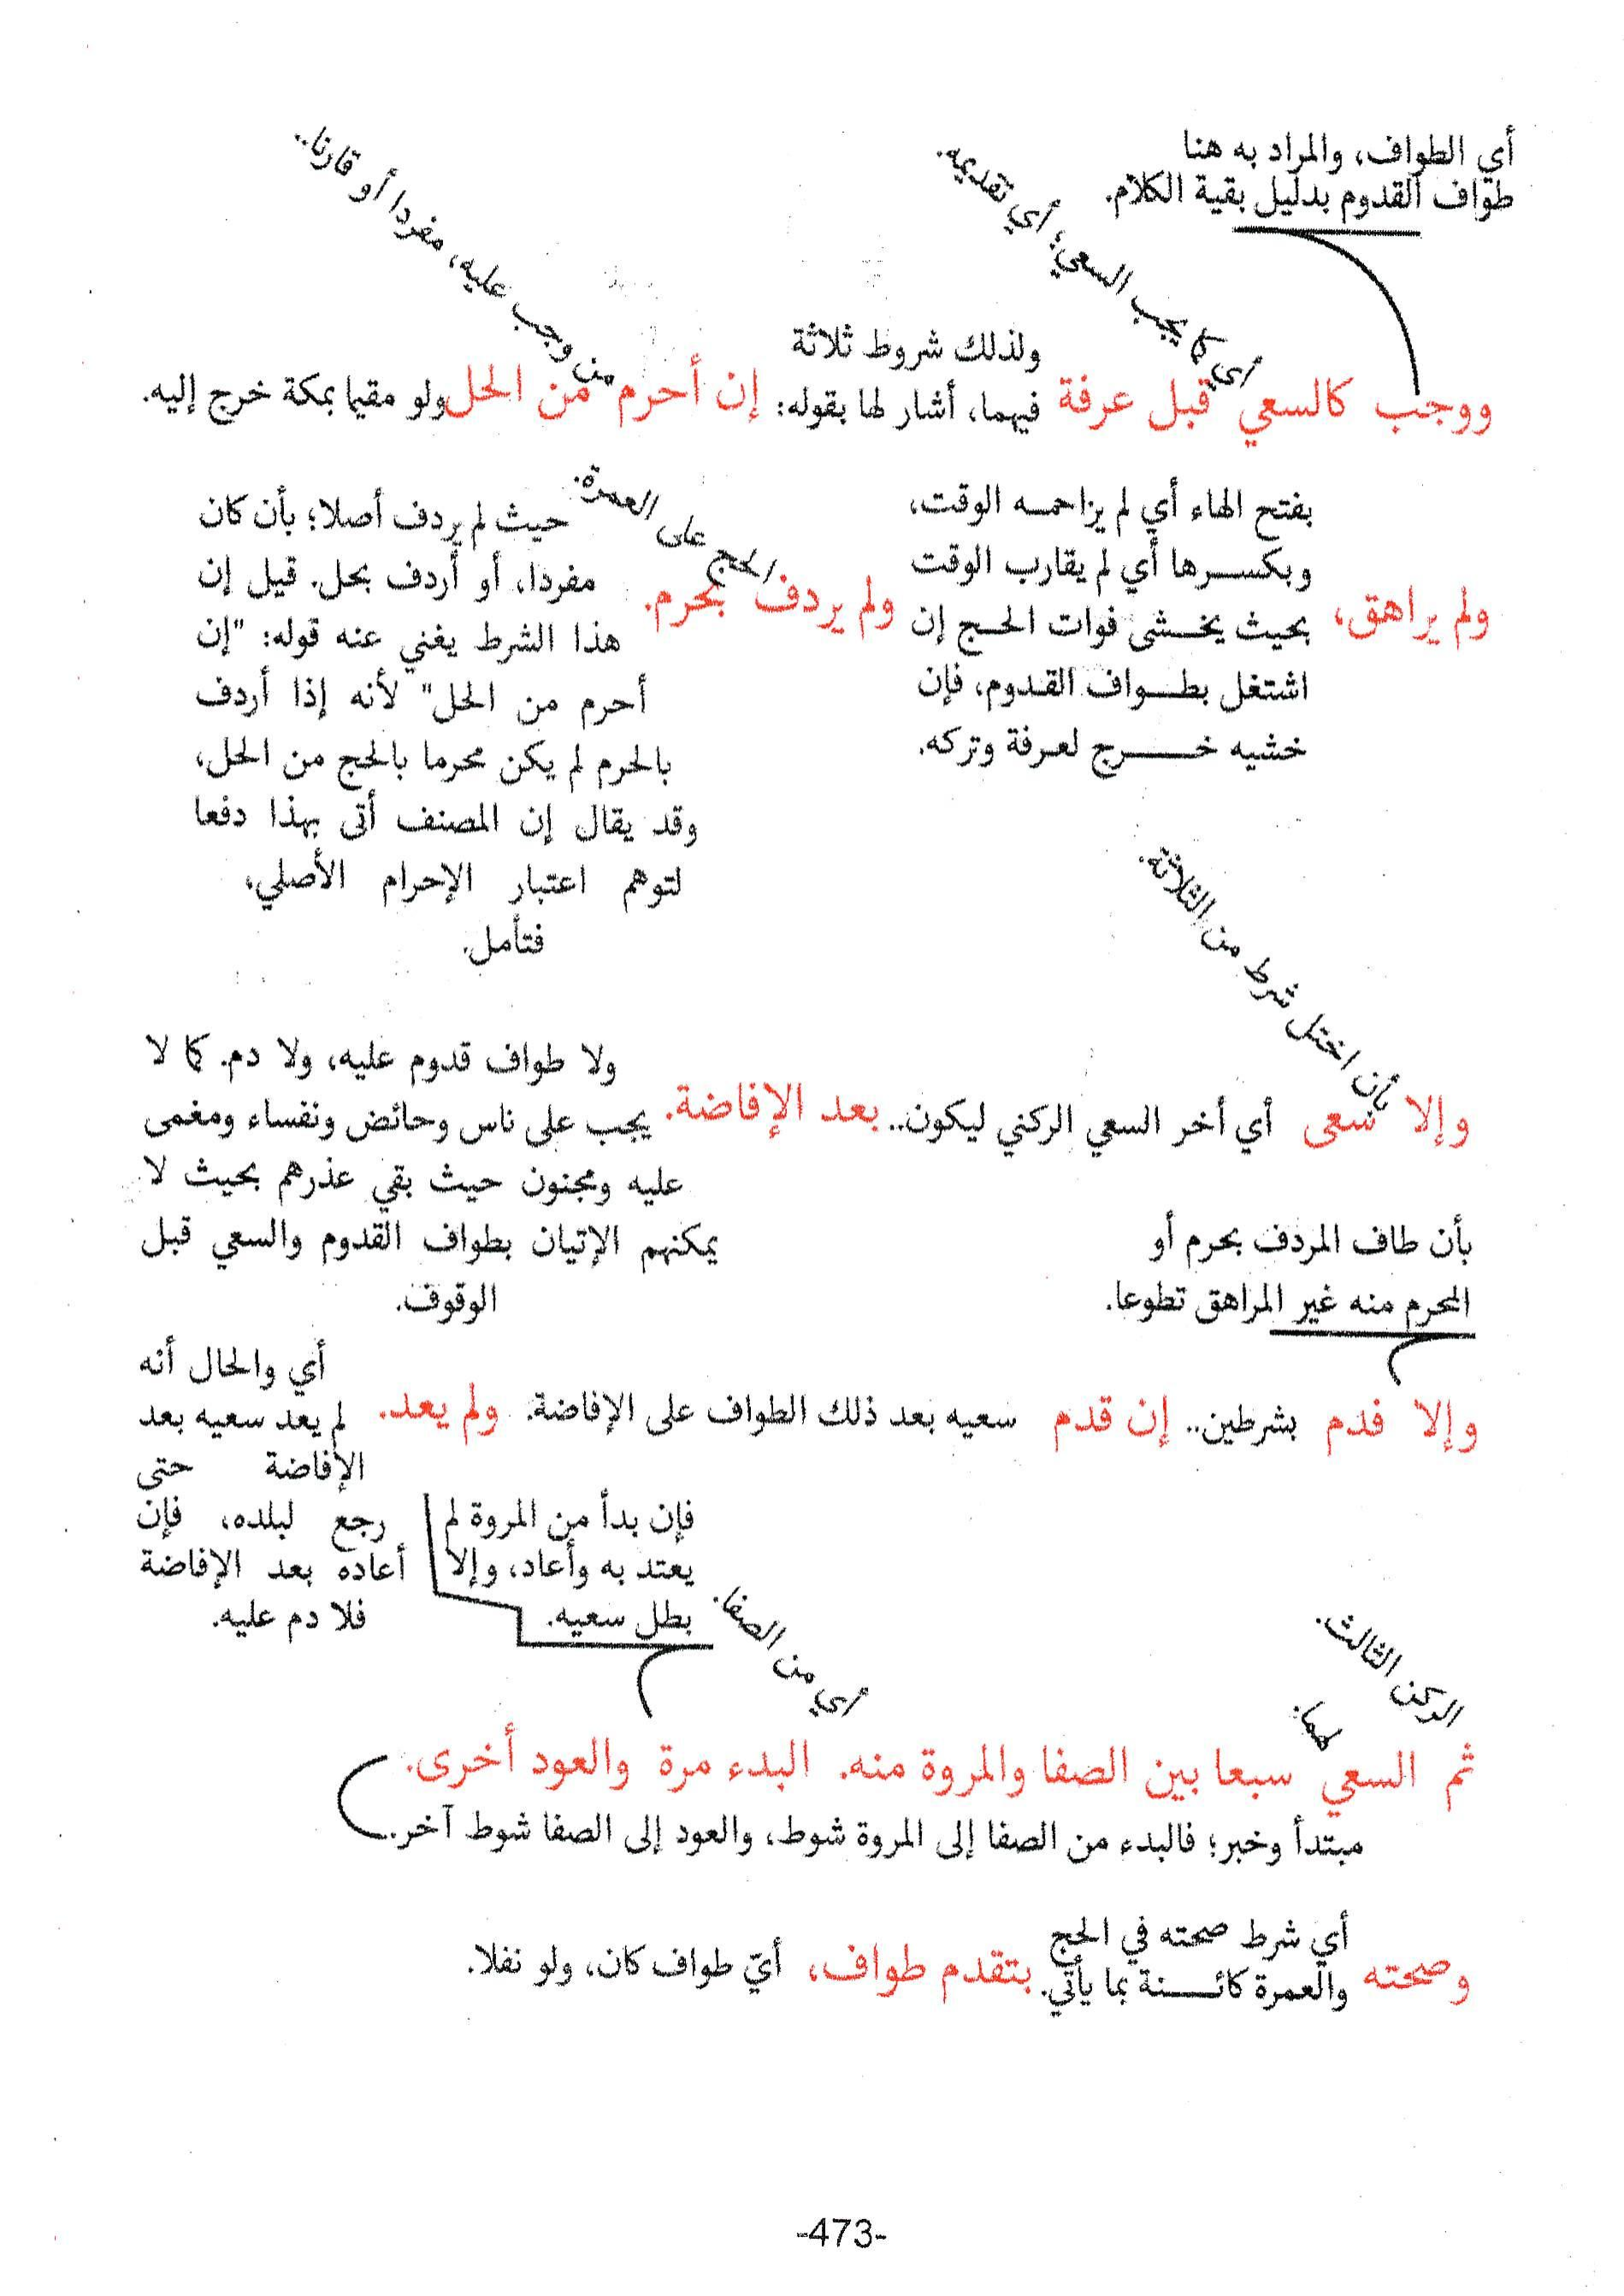 أي الطواف، والمراد به هنا
طواف القدوم بدليل بقية الكلام.
أي كما يجب السعي؛ أي تقديمه.
من وجب عليه، مفردا أو قارنا..
ووجب كالسعي قبل عرفة ولذلك شروط ثلاثة
فيهما، أشار لها بقوله: إن أحرم من الحل ولو مقيما بمكة خرج إليه.
ولم يراهق،
بفتح الهاء أي لم يزاحمه الوقت،
وبكسرها أي لم يقارب الوقت
بحيث يخشى فوات الحج إن
اشتغل بطواف القدوم، فإن
خشيه خرج لعرفة وتركه.
ولم يردف بحرم.
الحج على العمرة.
حيث لم يردف أصلا؛ بأن كان
مفردا، أو أردف بحل. قيل إن
هذا الشرط يغني عنه قوله: "إن
أحرم من الحل" لأنه إذا أردف
بالحرم لم يكن محرما بالحج من الحل،
وقد يقال إن المصنف أتى بهذا دفعا
لتوهم اعتبار الإحرام الأصلي،
فتأمل.
بأن اختل شرط من الثلاثة.
وإلا سعى أي أخر السعي الركني ليكون.. بعد الإفاضة.
ولا طواف قدوم عليه، ولا دم. كما لا
يجب على ناس وحائض ونفساء ومغمى
عليه ومجنون حيث بقي عذرهم بحيث لا
يمكنهم الإتيان بطواف القدوم والسعي قبل
الوقوف.
بأن طاف المردف بحرم أو
المحرم منه غير المراهق تطوعا.
وإلا فدم بشرطين.. إن قدم سعيه بعد ذلك الطواف على الإفاضة. ولم يعد.
أي والحال أنه
لم يعد سعيه بعد
الإفاضة حتى
رجع لبلده، فإن
أعاده بعد الإفاضة
فلا دم عليه.
فإن بدأ من المروة لم
يعتد به وأعاد، وإلا
بطل سعيه.
أي من الصفا.
الركن الثالث.
لهما.
ثم السعي سبعا بين الصفا والمروة منه. البدء مرة والعود أخرى.
مبتدأ وخبر؛ فالبدء من الصفا إلى المروة شوط، والعود إلى الصفا شوط آخر.
وصحته أي شرط صحته في الحج
والعمرة كائنة بما يأتي. بتقدم طواف، أيّ طواف كان، ولو نفلا.
-473-